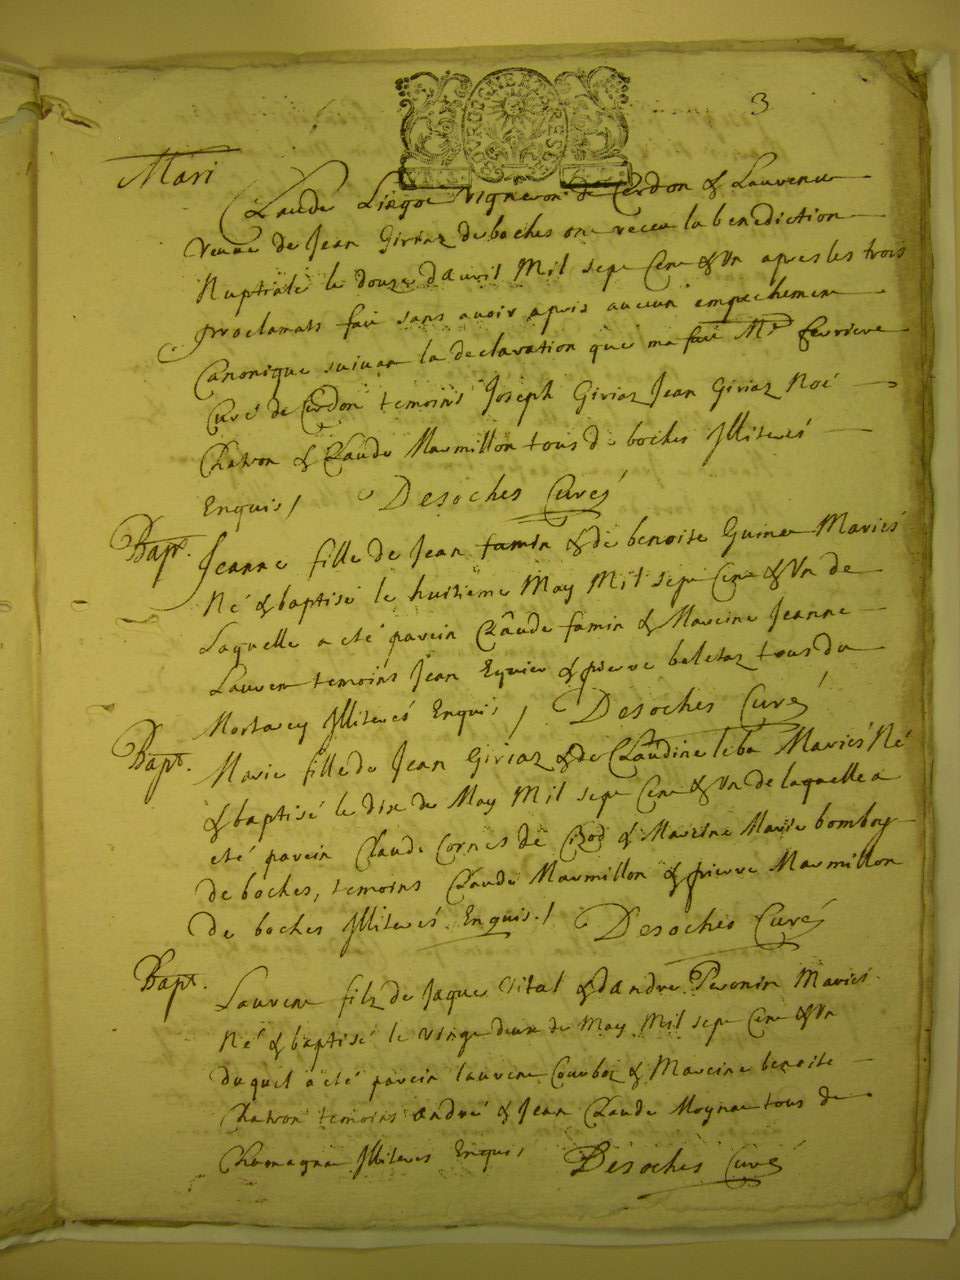 3
Mari
Claude Liegoe vigneron de Cerdon & Laurence
veuve de Jean Giriaz de boches ont receu la benediction
Nuptiale le douze d'Avril Mil sept Cent & Un apres les trois
proclamats fait sans avoir apris aucun empechement
Canonique suivant la declaration que ma fait Mr
Curé de Cerdon temoins Joseph Giriaz Jean Giriaz Noé
Chatron & Claude Marmillon tous de boches Illiterés
Enquis / Desoches Curé
Bapt. Jeanne fille de Jean famin & de benoite Guinet Mariés
Né & baptisé le huitieme May Mil sept Cent & Un de
Laquelle a eté parein Claude famin & Mareine Jeanne
Laurent temoins Jean & pierre beletaz tous du
Mortarey Illiterés Enquis / Desoches Curé
Bapt. Marie fille de Jean Giriaz & de Claudine leba Mariés Né
& baptisé le dix de May Mil sept Cent & Un de laquelle a
eté parein Claude Cornes de Cizod & Mareine Marie bomboy
de boches, temoins Claude Marmillon & pierre Marmillon
de boches Illiterés Enquis / Desoches Curé
Bapt. Laurent filz de Jaque Vital & d'Andre Peronin Mariés
Né & baptisé le vingt deux de May Mil sept Cent & Un
duquel a eté parein laurent Courboz & Mareine benoite
Chatron temoins André & Jean Claude Moynat tous de
Chamagnat Illiteres Enquis / Desoches Curé